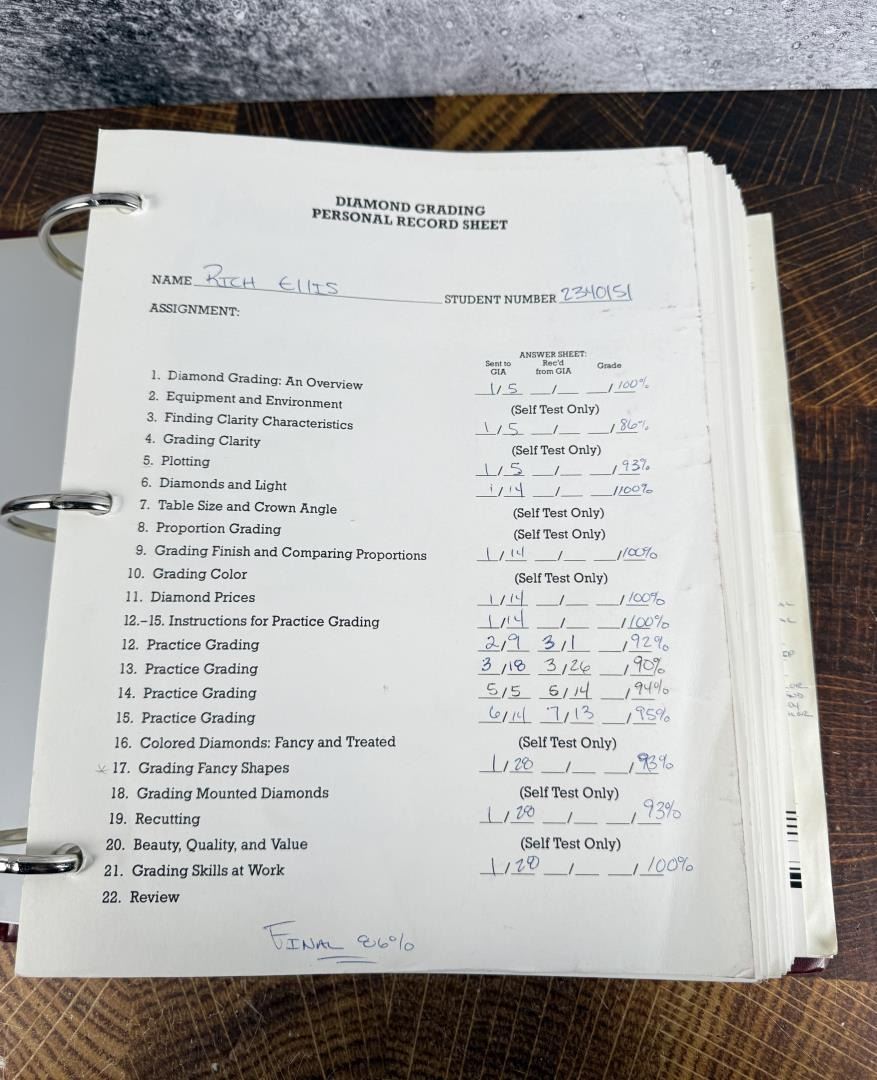 DIAMOND GRADING
PERSONAL RECORD SHEET
NAME RICH ELLIS STUDENT NUMBER 2340151
ASSIGNMENT:
ANSWER SHEET:
Sent to GIA Rec'd from GIA Grade
1. Diamond Grading: An Overview 1/5 __/__ __/100%
2. Equipment and Environment (Self Test Only)
3. Finding Clarity Characteristics 1/5 __/__ __/86%
4. Grading Clarity (Self Test Only)
5. Plotting 1/5 __/__ __/93%
6. Diamonds and Light 1/14 __/__ __/100%
7. Table Size and Crown Angle (Self Test Only)
8. Proportion Grading (Self Test Only)
9. Grading Finish and Comparing Proportions 1/14 __/__ __/100%
10. Grading Color (Self Test Only)
11. Diamond Prices 1/14 __/__ __/100%
12.-15. Instructions for Practice Grading 1/14 __/__ __/100%
12. Practice Grading 2/9 3/1 __/92%
13. Practice Grading 3/18 3/26 __/90%
14. Practice Grading 5/5 5/14 __/94%
15. Practice Grading 6/14 7/13 __/95%
16. Colored Diamonds: Fancy and Treated (Self Test Only)
17. Grading Fancy Shapes 1/28 __/__ __/93%
18. Grading Mounted Diamonds (Self Test Only)
19. Recutting 1/28 __/__ __/93%
20. Beauty, Quality, and Value (Self Test Only)
21. Grading Skills at Work 1/28 __/__ __/100%
22. Review
FINAL 86%